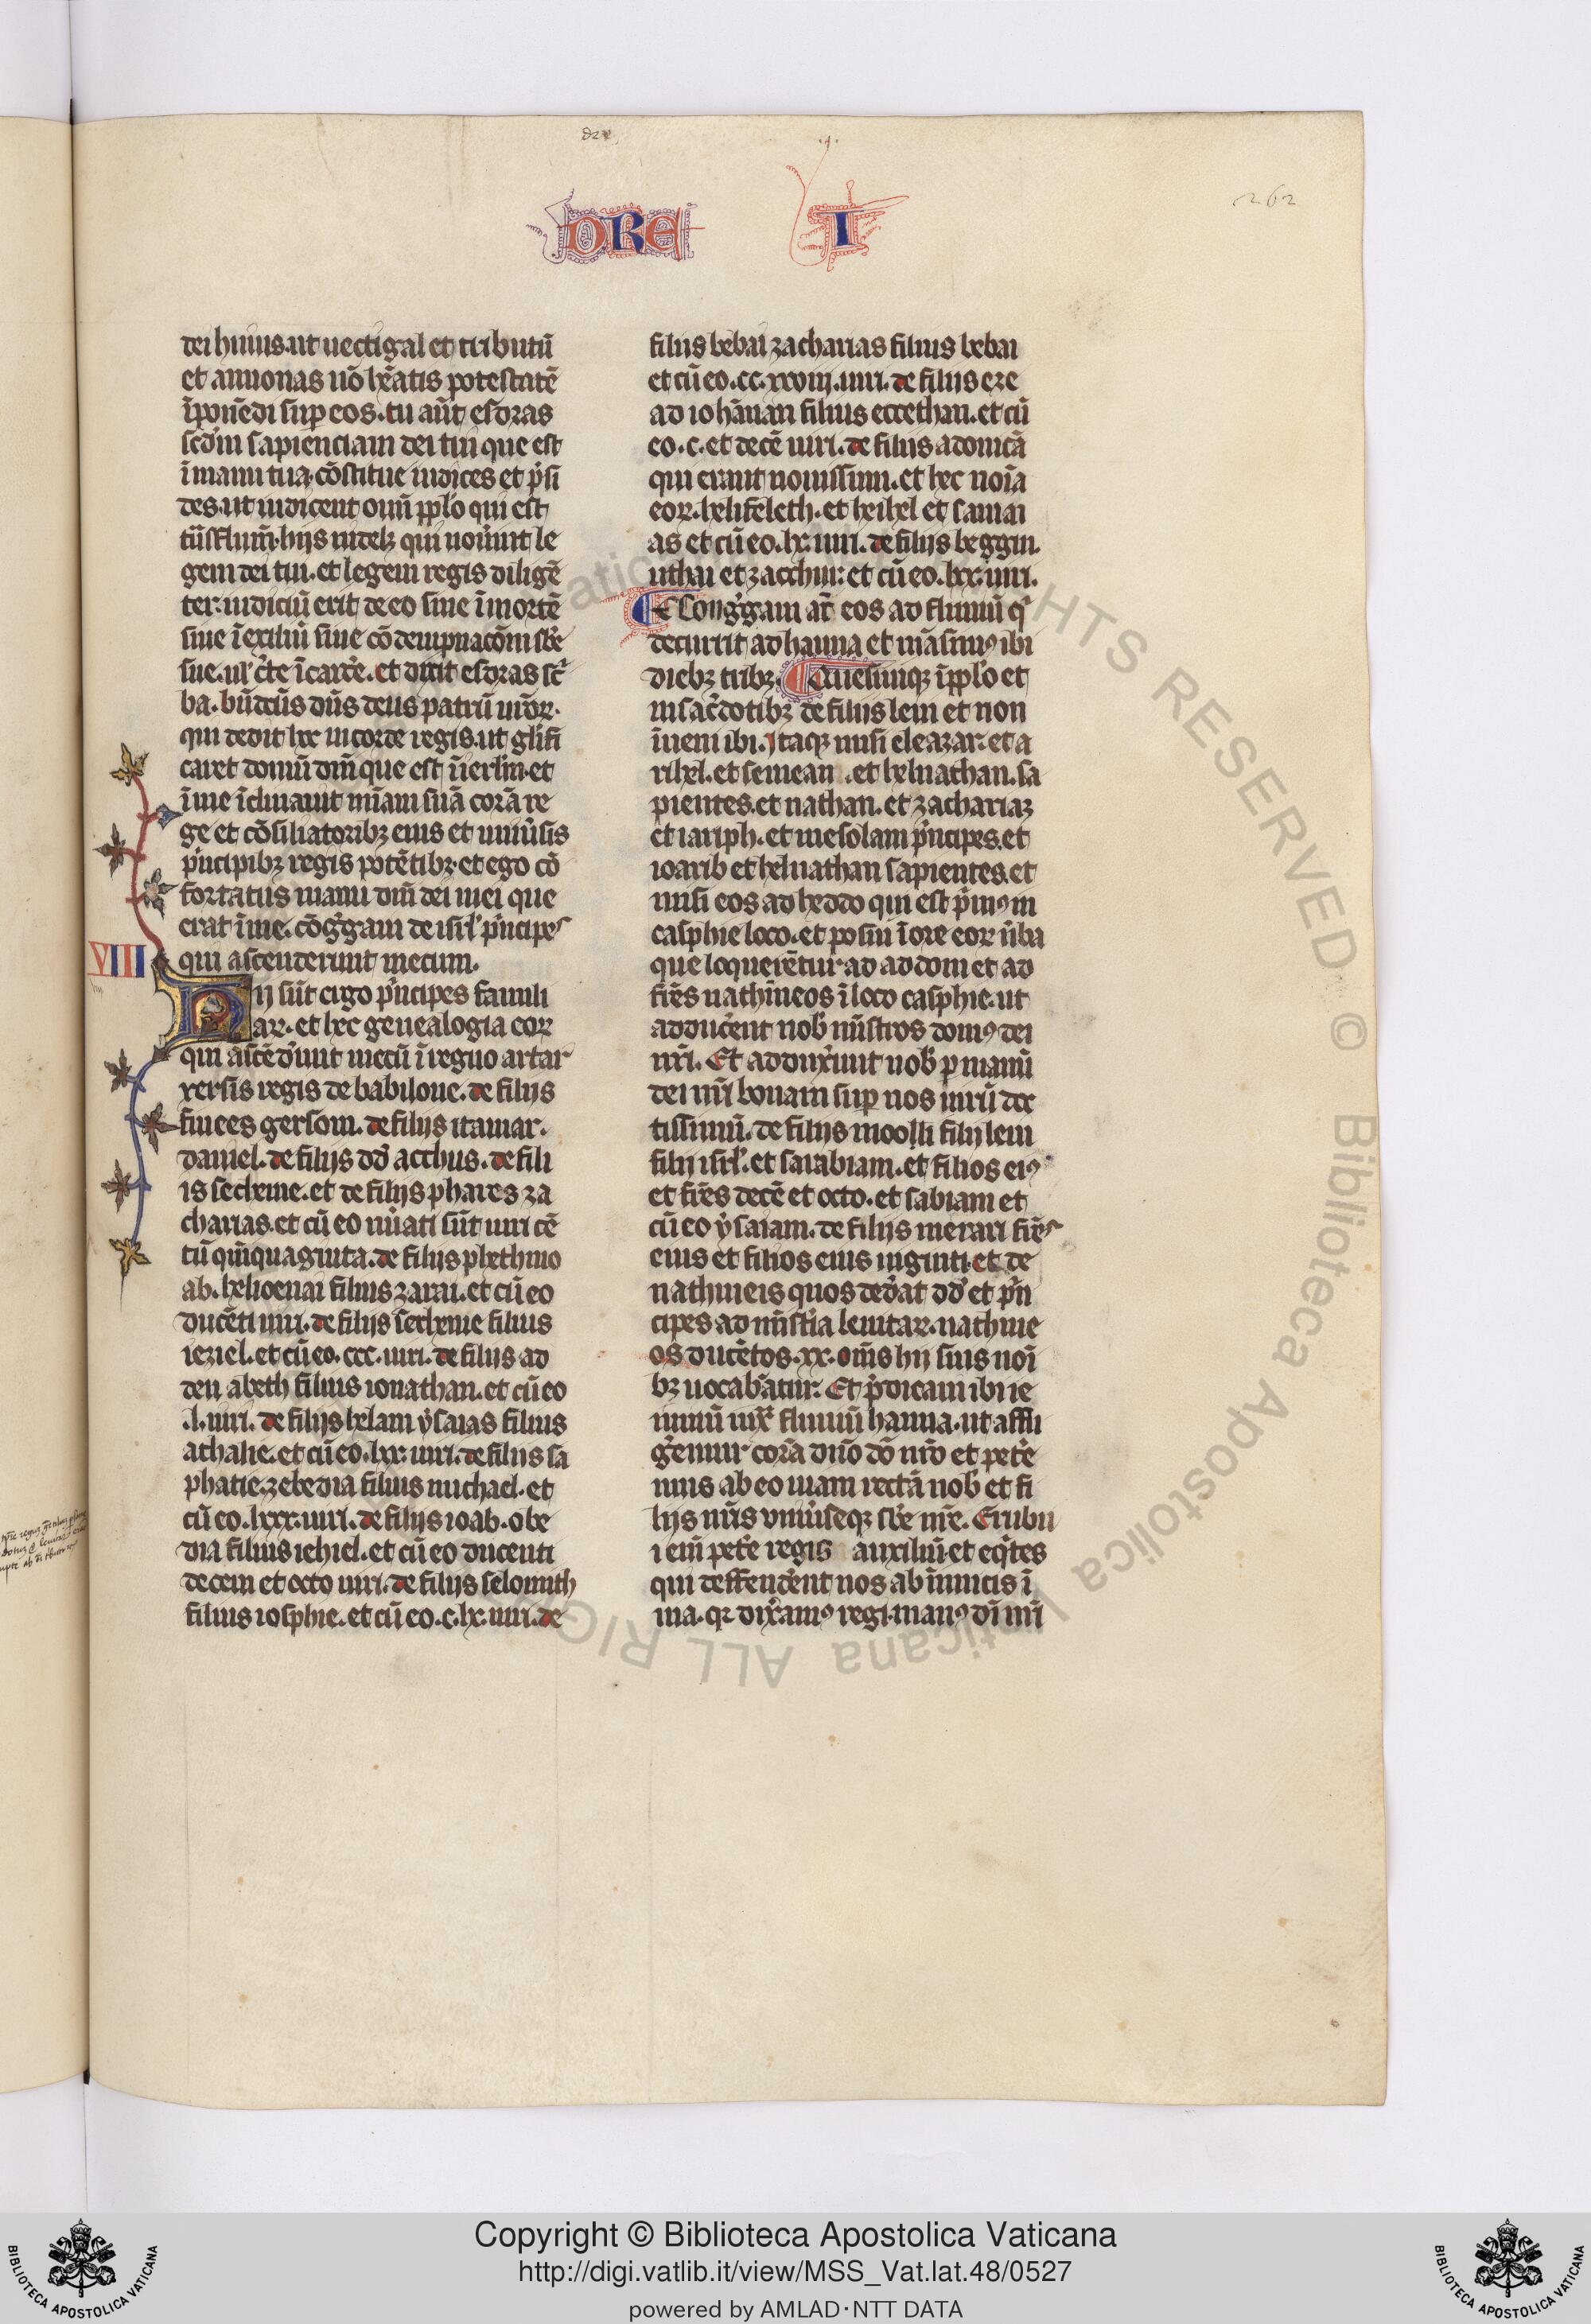 dre
DRE I
262
dei huius. ut uectigal et tributū
et annonas nō hēatis potestatē
īponēdi suꝑ eos. tu aūt esdras
scd'm sapienciam dei tui que est
ī manu tua. cōstitue iudices et p̄si
des. ut iudicent omī ppl'o qui est
gem dei tui. et legem regis diligē
ter. iudiciū erit de eo siue ī mortē
siue ī exiliū siue cō dempnacōm sb'e
sue. ul' c'te ī carc'e. et dixit esdras sc'
ba. bn̄dc̄us dn̄s deus patrū nr̄oꝝ.
qui dedit hec in corde regis. ut gl'ifi
caret domū dn̄i que est ī ierl'm. et
ī me īclinauit mīam suā corā re
ge et cōsiliatoribꝫ eius et uniu'sis
p'ncipibꝫ regis potētibꝫ. et ego cō
fortatus manu dn̄i dei mei que
erat ī me. cōg'gaui de isrl' p'ncipes
VIII qui ascenderunt mecum.
Hij sūt ergo p'ncipes famili
aꝝ. et hec genealogia eoꝝ
qui ascēd'unt mecū ī regno artar
xersis regis de babilone. de filijs
finees gersom. de filijs itamar.
daniel. de filijs dd' acchus. de fili
is secheme. et de filijs phares za
charias. et cū eo nūati sūt uiri cē
tū quīquaginta. de filijs phethmo
ab. helioenai filius zarai. et cū eo
ducēti uiri. de filijs secheme filius
ieziel. et cū eo. ccc. uiri. de filijs ad
den abeth filius ionathan. et cū eo
.l. uiri. de filijs helam ysaias filius
athalie. et cū eo. lxx. uiri. de filijs sa
phatie. zebedia filius michael. et
cū eo. lxxx. uiri. de filijs ioab. obe
dia filius iehiel. et cū eo ducenti
decem et octo uiri. de filijs selomith
filius iosphie. et cū eo. c. lx. uiri. de
filijs bebai zacharias filius bebai
et cū eo. .xxviij. uiri. de filijs eze
ad iohānan filius eccethan. et cū
eo. c. et decē uiri. de filijs adonicā
qui erant nouissimi. et hec noīa
eoꝝ. helifeleth. et heihel et samai
as et cū eo. lx. uiri. de filijs beggui.
uthai et zacchur. et cū eo. lxx. uiri.
Cong'gaui at̄ eos ad fluuiū q'
decurrit ad hauua et māsimꝰ ibi
diebꝫ tribꝫ. Quesiuiqꝫ ī ppl'o et
in sac'dotibꝫ de filijs leui et non
īueni ibi. Itaqꝫ misi eleazar. et a
rihel. et semeam. et helnathan. sa
pientes. et nathan. et zachariaꝫ
et iariph. et mesolam p'ncipes. et
ioarib et helnathan sapientes. et
misi eos ad heddo qui est p'mꝰ in
casphie loco. et posui ī ore eoꝝ u'ba
que loquerētur ad addom et ad
fr̄es nathineos ī loco casphie. ut
adduc'ent nob' mīstros domꝰ dei
nr̄i. Et addux'unt nob' ꝑ manū
dei nr̄i bonam suꝑ nos uirū doc
tissimū. de filijs moolli filij leui
filij isrl'. et sarabiam. et filios eiꝰ
et fr̄es decē et octo. et sabiam et
cū eo ysaiam. de filijs merari fr̄es
eius et filios eius uiginti. et de
nathineis quos ded'at dd' et p'n
cipes ad mīst'ia leuitaꝝ. nathine
os ducētos. xx. om̄s hij suis noī
bꝫ uocabātur. Et p'dicaui ibi ie
iuniū iux̄ fluuiū hauua. ut affli
g'emur corā dn̄o dō nr̄o et pet'e
mus ab eo uiam rectā nob' et fi
lijs nr̄is uniu'seqꝫ sb'e nr̄e. Erubu
i em̄ pet'e regis auxiliū et eq'tes
qui deffend'ent nos ab īimicis ī
uia. qꝛ dix'amꝰ regi. manꝰ dī nr̄i
Copyright © Biblioteca Apostolica Vaticana
http://digi.vatlib.it/view/MSS_Vat.lat.48/0527
powered by AMLAD·NTT DATA
BIBLIOTECA APOSTOLICA VATICANA
BIBLIOTECA APOSTOLICA VATICANA